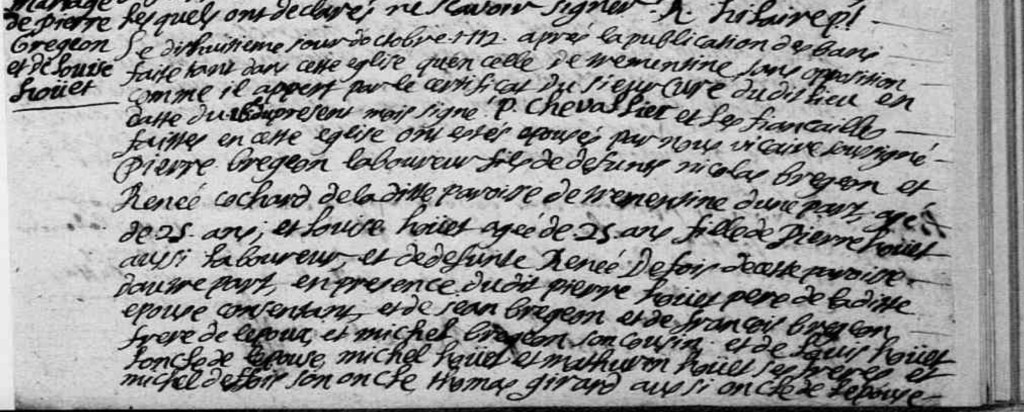 mariage
de pierre
Gregeon
et de Louise
houët
lesquels ont declarés ne scavoir signer R. hilaire pt
Le dixhuitieme jour doctobre 1712 apres la publication des bans
faite tant dans cette eglise quen celle de trementine sans opposition
comme il appert par le certificat du sieur curé dudit lieu en
datte du present mois signé P. Chevallier et les fiancailles
faittes en cette eglise ont estés epousés par nous vicaire soussigné
Pierre bregeon laboureur fils de defunts nicolas bregeon et
Reneé cochard de laditte paroise de trementine dune part, agé
de 25 ans, et Louise houët ageé de 25 ans fille de Pierre houët
aussi laboureur et de defunte Reneé defois de cette paroise
dautre part, en presence dudit pierre houët pere de laditte
epouse consentant, et de jean bregeon et de francois bregeon
frere de lepoux, et michel bregeon son cousin, et de Louis houët
loncle de lepouse, michel houët et mathurin houët ses freres et
michel deffois son oncle thomas girard aussi oncle de lepouse